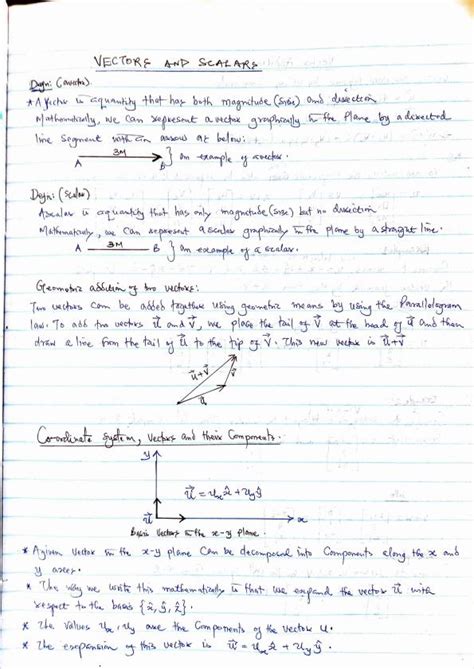 VECTORS AND SCALARS
Defn: (a vector)
* A Vector is a quantity that has both magnitude (size) and direction
Mathematically, we can represent a vector graphically in the Plane by a directed
line segment with an arrow as below:
A 3M B } an example of a vector.
Defn: (Scalar)
A scalar is a quantity that has only magnitude (size) but no direction
Mathematically, we can represent a scalar graphically in the plane by a straight line.
A 3M B } an example of a scalar.
Geometric addition of two vectors:
Two vectors can be added together using geometric means by using the Parallelogram
law. To add two vectors u⃗ and v⃗, we place the tail of v⃗ at the head of u⃗ and then
draw a line from the tail of u⃗ to the tip of v⃗. This new vector is u⃗+v⃗
u⃗+v⃗
v⃗
u⃗
Coordinate system, vectors and their Components.
y
u⃗ = uₓx̂ + uᵧŷ
u⃗
x
Basis vectors in the x-y plane.
* A given vector in the x-y plane can be decomposed into Components along the x and
y axes.
* The way we write this mathematically is that we expand the vector u⃗ with
respect to the basis {x̂, ŷ, ẑ}.
* The values uₓ, uᵧ are the Components of the vector u.
* The expansion of this vector is u⃗ = uₓx̂ + uᵧŷ.